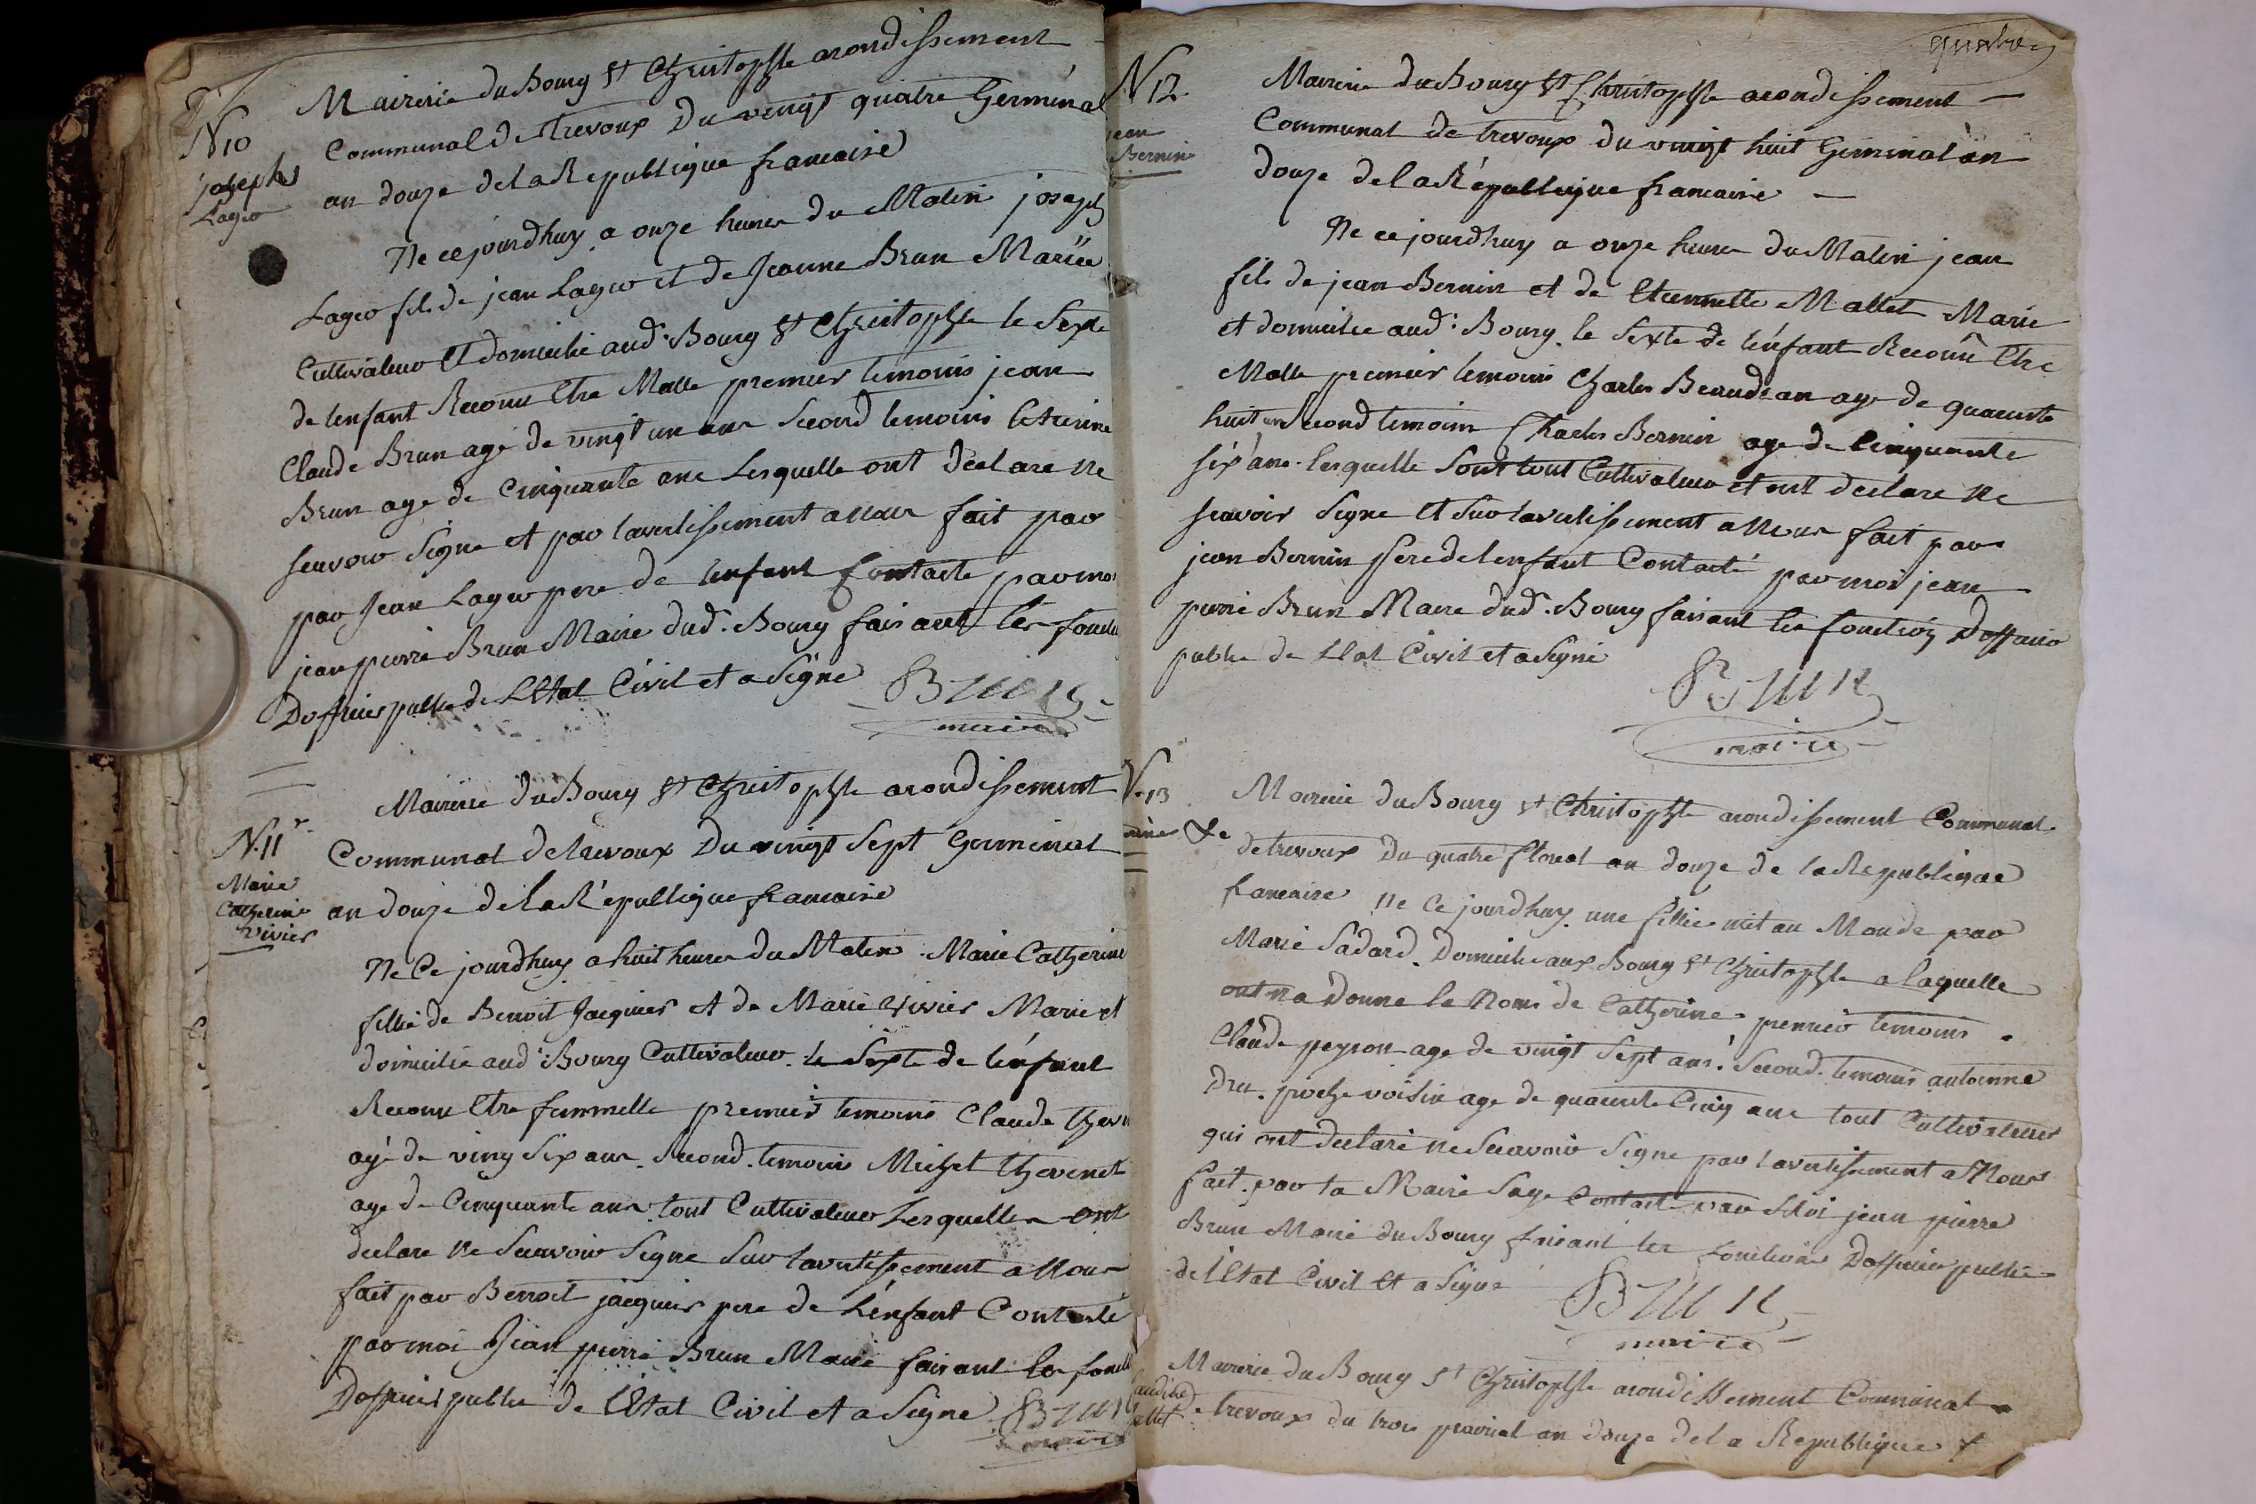 N 10
joseph
Lagie
Mairerie du Bourg St Christophle arondissement
Communal de Trevoux Du vingt quatre Germinal
an douze de la Republique francaise
Ne ce jourdhuy a onze heures du Matin joseph
fils de jean et de Jeanne Brun Mariée
Cultivateur et domicilié aud. Bourg St Christophle le Sexe
de lenfant Reconu Etre Malle premier temoins jean
Claude Brun agé de vingt un ans Second temoins Etienne
Brun age de Cinquante ans Lesquelle ont déclare ne
Seavoir Signe et par lavertissement a nous fait par
par Jean pere de lenfant Contacte par moi
jean pierre Brun Maire dud. Bourg faisant les
Dofficier public de LEtat Civil et a Signé
Brun
maire
N. 11
Marie
Catherine
vivier
Mairerie du Bourg St Christophle arondissement
Communal de trevoux Du vingt Sept Germinal
an douze de la République francaise
Ne Ce jourdhuy a huit heures du Matin Marie Catherine
fillie de Benoit Jaquier et de Marie vivier Marié et
domicilié aud. Bourg Cultivateur le Sexte de lénfant
Reconu Etre fammelle premier temoins Claude
agé de ving Six ans Second temoins Michel thevenet
age de Cinquante ans tout Cultivateur Lesquelle ont
declare ne Seavoir Signe Sur lavertissement a Nous
fait par Benoit jaquier pere de Lénfant Contacté
par moi Jean pierre Brun Maire faisant les
Dofficier public de LEtat Civil et a Signe Brun
maire
quatre
N 12
jean
Bernin
Mairerie du Bourg St Christophle arondissement
Communal de trevoux du vingt huit Germinal an
douze de la République francaise
Ne ce jourdhuy a onze heures du Matin jean
fils de jean Bernin et de Etiennette Mallet Marié
et domicilie aud. Bourg le Sexte de lénfant Reconu Etre
Malle premier temoins Charles Beaudran age de quarente
huit ans Second temoins Charles Bernin age de Cinquante
six ans lesquelle Sont tout Cultivateur et ont declare ne
seavoir Signe et Sur lavertissement a Nous fait par
jean Bernin pere de lenfant Contacté par moi jean
pierre Brun Maire dud. Bourg faisant les fonction Dofficier
public de LEtat Civil et a Signé
Brun
maire
N. 13
Mairerie du Bourg St Christophle arondissement Communal
de trevoux Du quatre floreal an douze de la Republique
francaise Ne Ce jourdhuy une fillie mit au Monde par
Marie Sadard Domicilie aux Bourg St Christophle a laquelle
ont na Donne le Nom de Catherine premier temoins
Claude peyron age de vingt Sept ans Second temoins antoinne
Dru proche voisin age de quarente Cinq ans tout Cultivateur
qui ont declaré ne Seavoir Signe par lavertissement a Nous
fait par la Marie Sage Contact par Moi jean pierre
Brun Maire du Bourg faisant les fonctions Dofficier public
de lEtat Civil et a Signé
Brun
maire
Mairerie du Bourg St Christophle arondissement Communal
de trevoux du trois prairial an douze de la Republique f